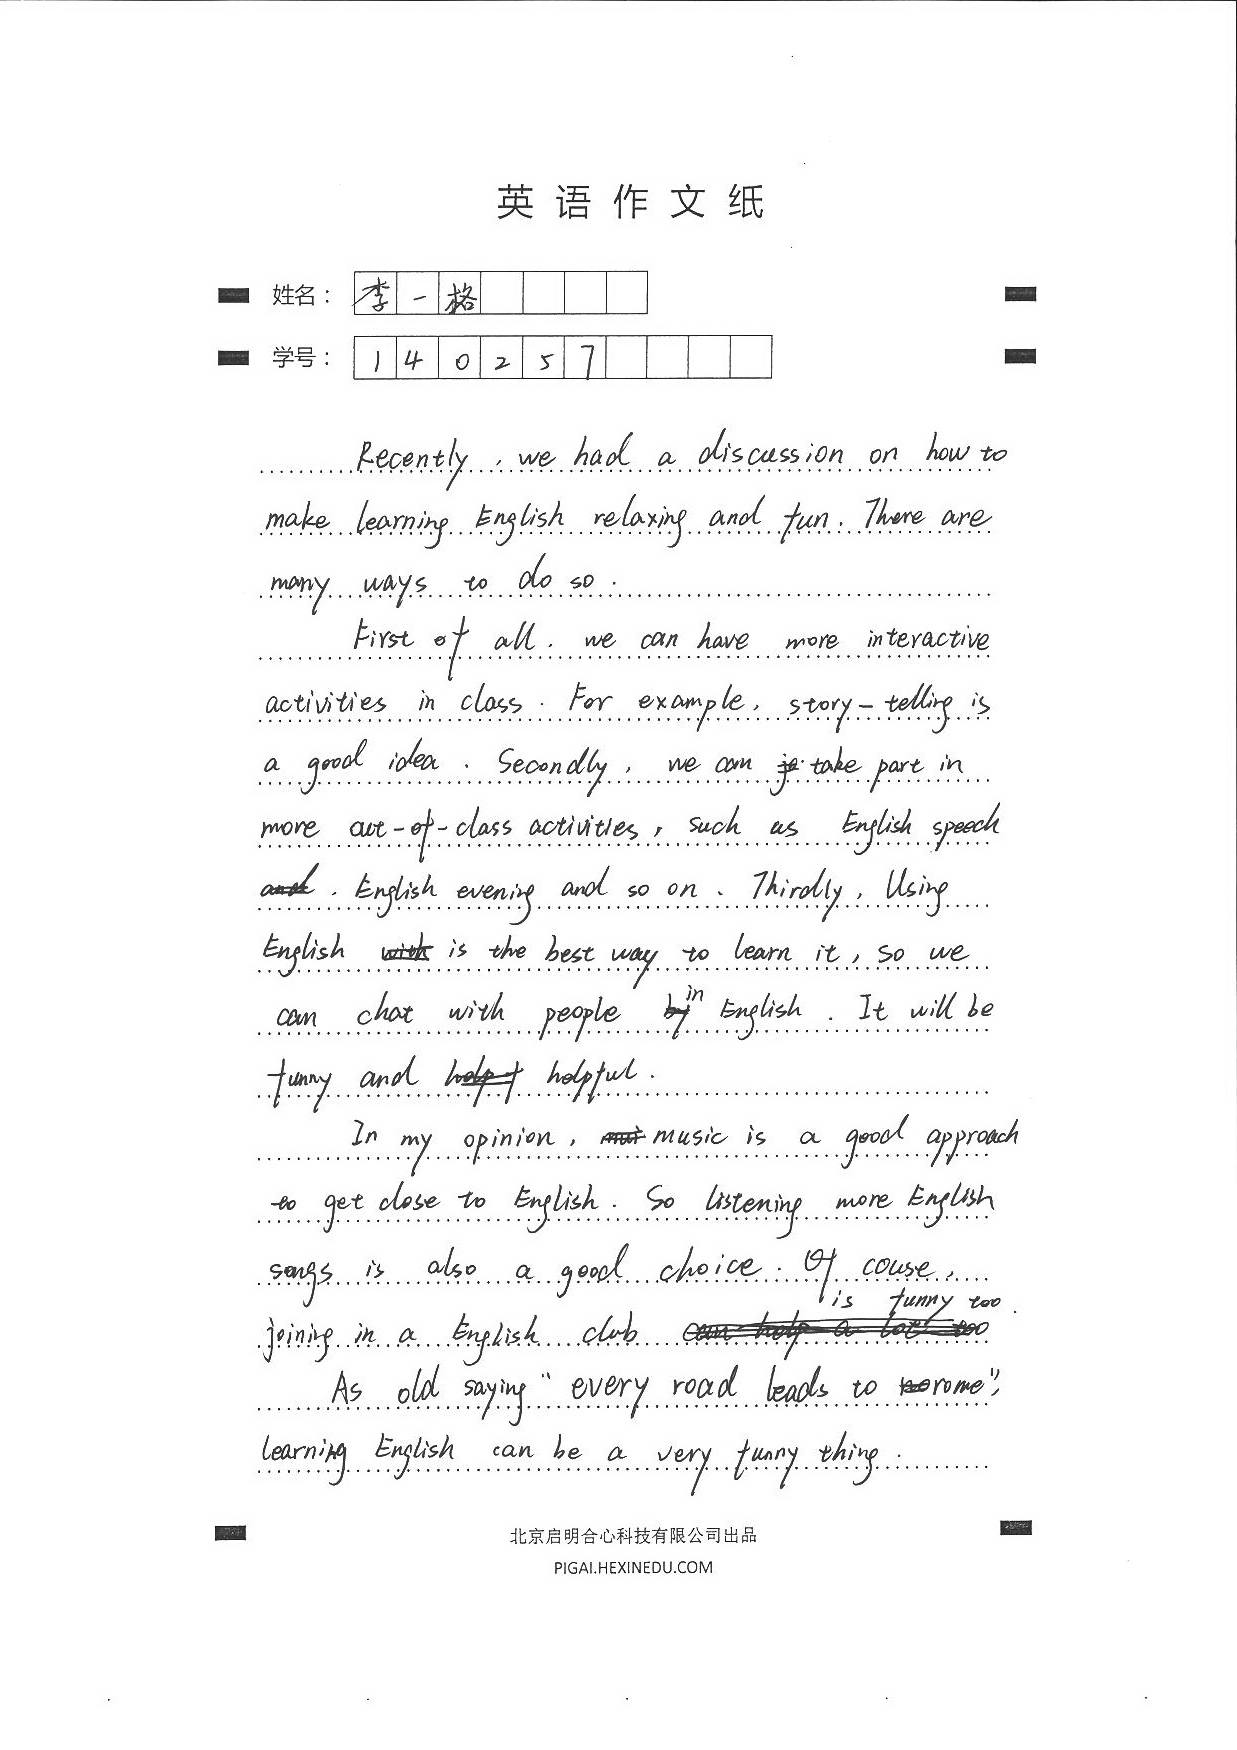 英语作文纸
姓名： 李一格
学号： 140257
Recently, we had a discussion on how to
make learning English relaxing and fun. There are
many ways to do so.
First of all, we can have more interactive
activities in class. For example, story-telling is
a good idea. Secondly, we can take part in
more out-of-class activities, such as English speech
, English evening and so on. Thirdly, Using
English is the best way to learn it, so we
can chat with people in English. It will be
funny and helpful.
In my opinion, music is a good approach
to get close to English. So listening more English
songs is also a good choice. Of couse,
joining in a English club is funny too.
As old saying "every road leads to rome",
learning English can be a very funny thing.
北京启明合心科技有限公司出品
PIGAI.HEXINEDU.COM